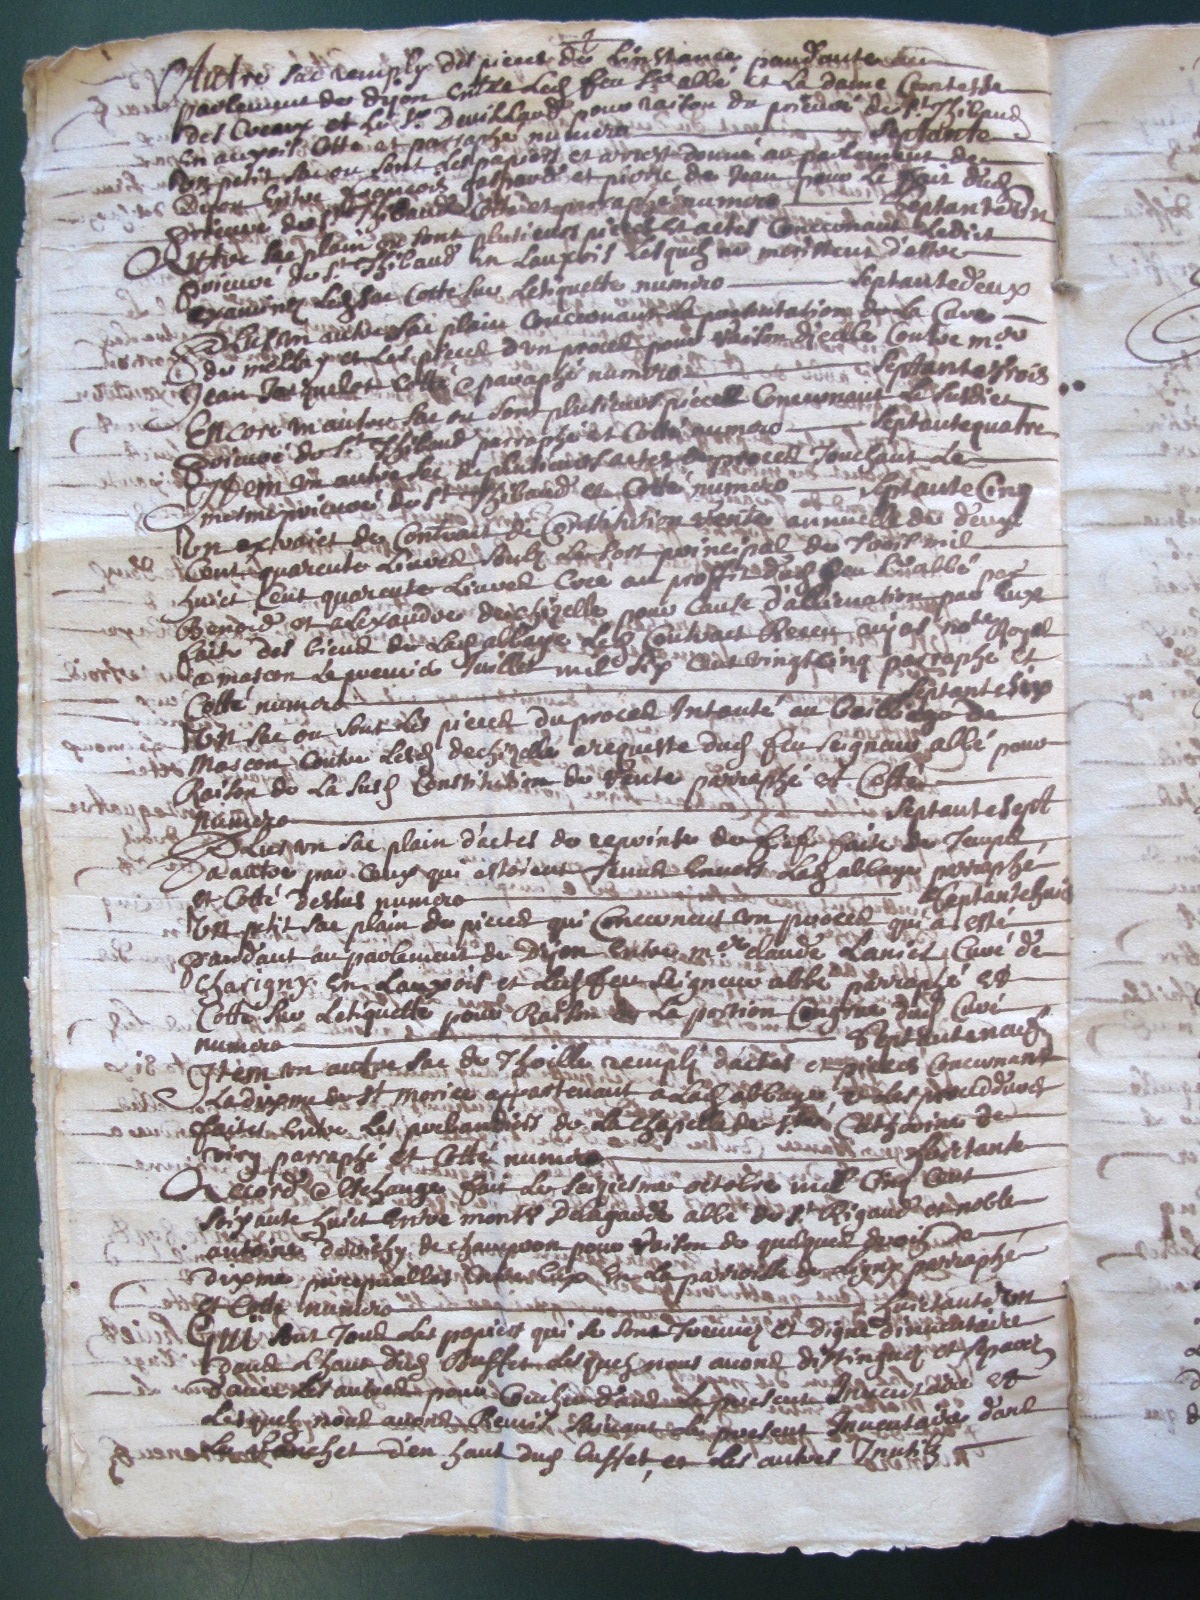 Autre sac remply des pieces de linstance pandante au
parlement de dijon entre led feu Sr abbé et la dame Contesse
des Cveaux et le Sr Devilland pour raison du prieuré de St Thibaud
En auxois Cotte et parraphé numero septante
Un petit sac ou sont les papiers et arrest donné au parlement de
Dijon Entre françois gaspard et pierre de Jean pour le fait dud
prieuré de St Thibaud Cotté et parraphé numero septante Un
Autre sac plain ou sont plusieurs pieces et actes Concernant ledict
prieuré de St Thibaud En Lauxois lesquelz ne meritent d'estre
examinez led sac Cotté sur letiquette numero septante deux
Plus un autre sac plain Concernant la presentation de la Cure
de mellay et les pieces d'un proces pour raison d'icelle Contre mre
Jean Jacquelot Cotté et paraphé numero septante trois
Encore un autre sac ou sont plusieurs pieces Concernant le susdict
prieuré de St Thibaud parraphé et Cotté numero septante quatre
Item un autre sac de plusieurs actes et proces Touchant le
mesme prieuré de St Thibaud et Cotté numero septante Cinq
Un extraict de Contract de Constitution Rente annuelle de deux
Cent quarente Livres soubz le sort principal de Trois mil
huict Cent quarente Livres Cree au proffit dud feu Sr abbé par
Benoid et alexandre dechizelle pour Cause d'allienation par Eux
faite des biens de Lad abbaye led Contract Receu aujas notre Royal
a mascon le premier Juillet mil six Cent vingt Cinq parraphé et
Cotté numero septante six
Un sac ou sont les pieces du proces Intanté au bailliage de
Mascon Contre lesd dechizelle a requeste dud feu seigneur abbé pour
Raison de la susd Constitution de Rente parraphé et Cotté
numero septante sept
Plus un sac plain d'actes de reprinse de fief faite de Temps
a autre par Ceux qui estoient Tenus Envers Lad abbaye parraphé
et Cotté dessus numero septante huict
Un petit sac plain de pieces qui Concernent un proces qui a esté
pandant au parlement de Dijon Entre mre claude Laniet Curé de
Charigny En Lauxois et led feu seigneur abbé parraphé et
Cotté sur letiquette pour Raison de la portion Congrue dud Curé
numero septante neuf
Item un autre sac de Thoille rempli d'actes et pieces Concernant
La dixme de St morice appartenant a Lad abbaye et les procedures
faites Entre les prebandiers de la chapelle de ste Catherine de
Viry parraphé et Cotté numero huictante
Accord et Eschange fait le seziesme octobre mil Cinq Cent
soixante huict Entre monsr delagarde abbé de St Rigaud et noble
antoine dewichy de champron pour raison de quelques droicts de
dixme perceptables Entre Eux En la parroisse de Ligny parraphé
et Cotté numero huictante Un
Qui sont Tous les papiers qui se sont Treuvez et digne d'inventaire
dans le haut dud Buffet lesquelz nous avons distinguez et separez
d'avec les autres pour Enclure dans le present Inventaire et
lesquelz nous avons Remis suivant le present Inventaire dans
les planchet d'en haut dud buffet, et les autres Inutilz